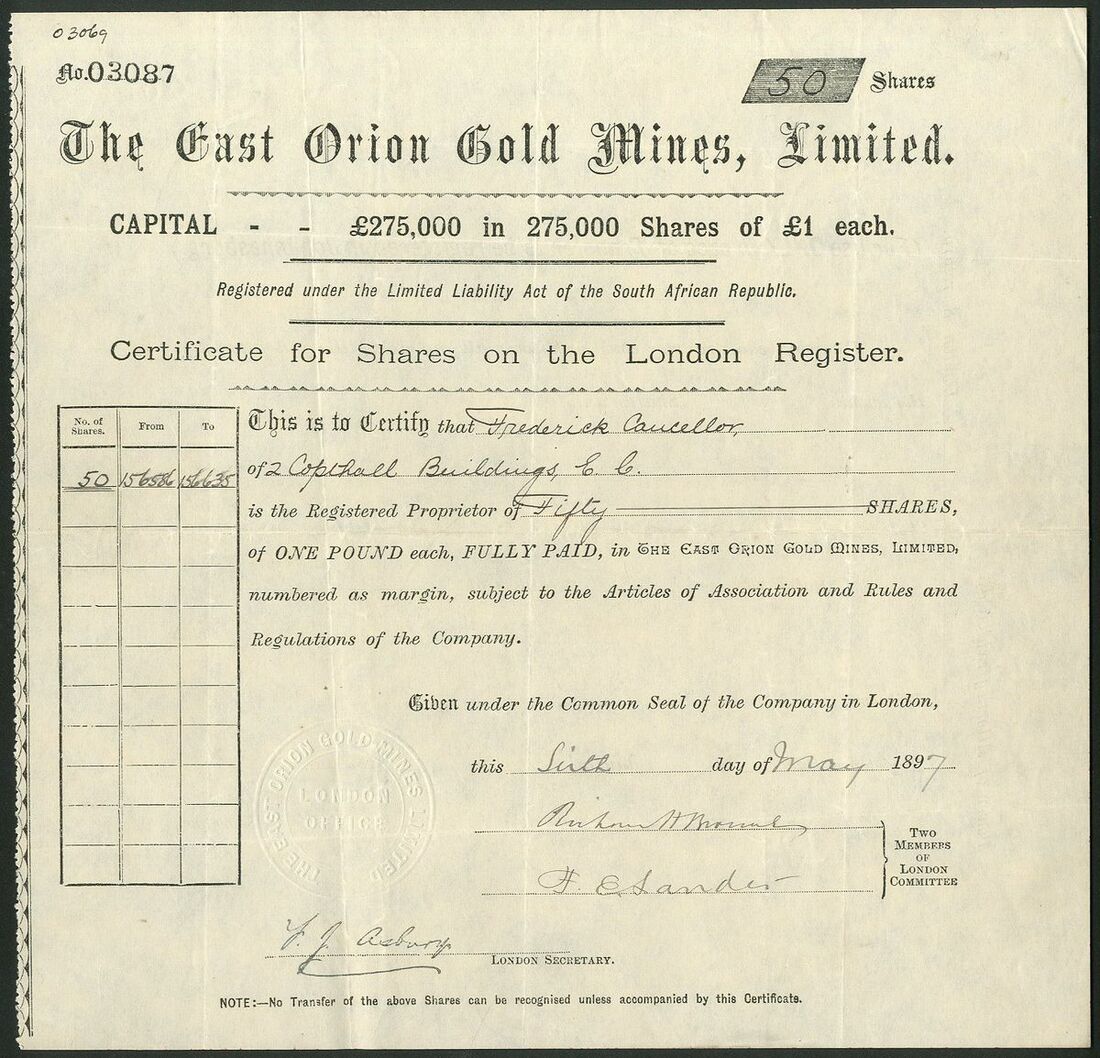 03069
No. 03087
50 Shares
The East Orion Gold Mines, Limited.
CAPITAL - - £275,000 in 275,000 Shares of £1 each.
Registered under the Limited Liability Act of the South African Republic.
Certificate for Shares on the London Register.
No. of Shares. From To
50 156586 156635
This is to Certify that Frederick Cancellor,
of 2 Copthall Buildings, E C.
is the Registered Proprietor of Fifty SHARES,
of ONE POUND each, FULLY PAID, in THE EAST ORION GOLD MINES, LIMITED,
numbered as margin, subject to the Articles of Association and Rules and
Regulations of the Company.
Given under the Common Seal of the Company in London,
this Sixth day of May 1897
THE EAST ORION GOLD MINES LIMITED
LONDON
OFFICE
F. E. Sander
TWO
MEMBERS
OF
LONDON
COMMITTEE
F. J. Asbury
LONDON SECRETARY.
NOTE:—No Transfer of the above Shares can be recognised unless accompanied by this Certificate.